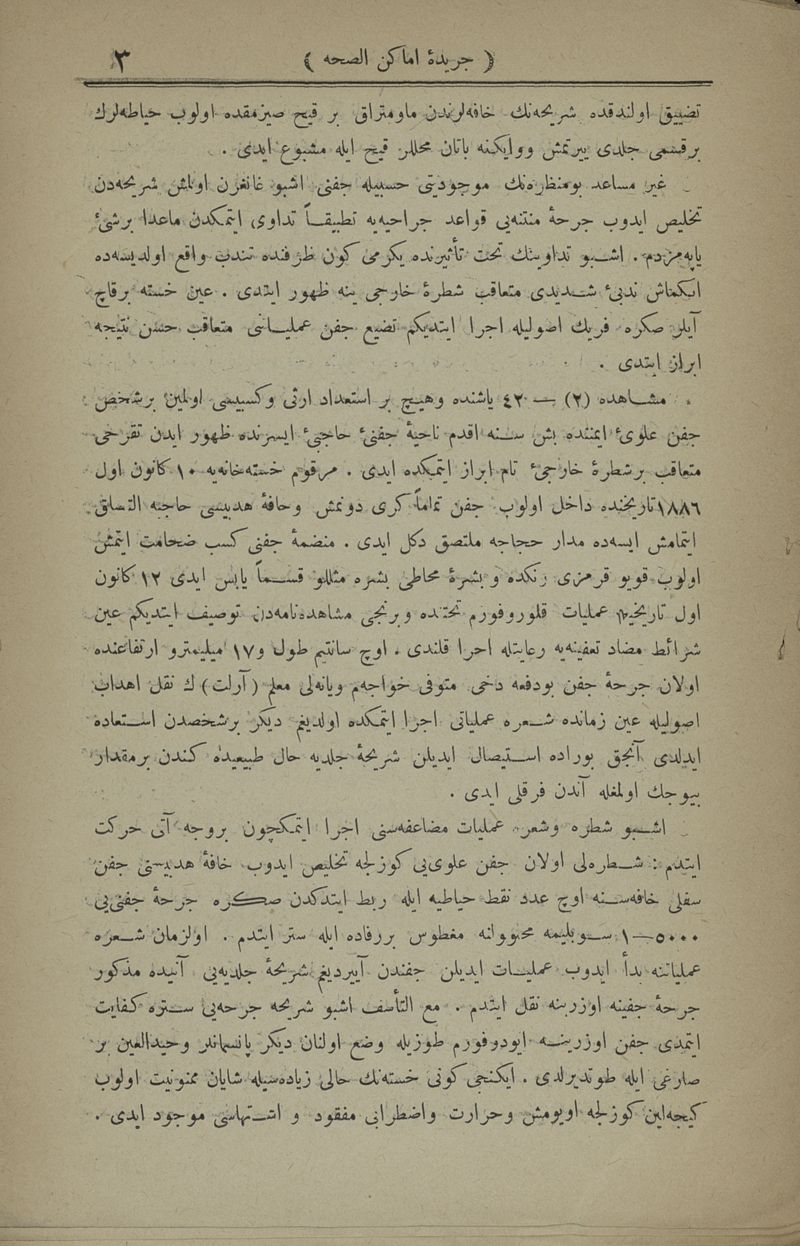 ﴿ جريدهٔ اماكن الصحه ﴾ ٣
تضييق اولندقده شريحه‌نك خافه‌لرندن ماومتراق بر قيح صيزمقده اولوب خياطه‌لرك
برقسمى جلدى ييرتمش ووايكنه باتان محللر قيح ايله مشبوع ايدى .
غير مساعد بومنظره‌نك موجوديتى حسبيله جفنى اشبو غانغرن اولمش شريحه‌دن
تخليص ايدوب جرحهٔ منتنه‌يى قواعد جراحيه‌يه تطبيقاً تداوى ايتمكدن ماعدا برشئ
ياپه‌مزدم . اشبو تداوينك تحت تأثيرنده يكرمى كون ظرفنده تندب واقع اولديسه‌ده
انكماش ندبئ شديدى متعاقب شطرهٔ خارجى ينه ظهور ايتدى . عين خسته برقاچ
آيلر صكره فريك اصوليله اجرا ايتديكم تضيع جفن عملياتى متعاقب حسن نتيجه
ابراز ايتدى .
مشاهده (٢) — ٤٢ ياشنده وهيچ بر استعداد ارثى وكسبيسى اولمين برشخص
جفن علوئ ايمننده بش سنه اقدم ناحيهٔ جفنئ حاجبئ ايسرنده ظهور ايدن تقرحى
متعاقب برشطرهٔ خارجئ تام ابراز ايتمكده ايدى . مرقوم خسته‌خانه‌يه ١٠ كانون اول
١٨٨٦ تاريخنده داخل اولوب جفن تماماً كرى دونمش وحافهٔ هدبيسى حاجبه التصاق
ايتمامش ايسه‌ده مدار حجاجه ملتصق دكل ايدى . منضمهٔ جفنى كسب ضخامت ايتمش
اولوب قويو قرمزى رنكده و بشرهٔ مخاطى بشره مثللو قسماً يابس ايدى ١٢ كانون
اول تاريخنده عمليات قلوروفورم تحتنده وبرنجى مشاهده‌نامه‌دن توصيف ايتديكم عين
شرائط مضاد تعفينه‌يه رعايتله اجرا قلندى . اوچ سانتيم طول و١٧ ميليمترو ارتفاعنده
اولان جرحهٔ جفن بودفعه دخى متوفى خواجه‌م ويانه‌لى معلم (آرلت) ك نقل اهداب
اصوليله عين زمانده شعره عملياتى اجرا ايتمكده اولديغم ديكر برشخصدن استعاده
ايدلدى آنجق بوراده استيصال ايديلن شريحهٔ جلديه حال طبيعيده كندن برمقدار
بيوجك اولمغله آندن فرقلى ايدى .
اشبو شطره وشعره عمليات مضاعفه‌سنى اجرا ايتمكچون بروجه آتى حركت
ايتدم : شطره‌لى اولان جفن علوى‌يى كوزلجه تخليص ايدوب خافهٔ هدبيسنى جفن
سفلى خافه‌سنه اوچ عدد نقط خياطيه ايله ربط ايتدكدن صكره جرحهٔ جفنى‌يى
٥٠٠٠—١ سوبليمه محبووانه مغطوس بررفاده ايله ستر ايتدم . اولزمان شعره
عملياتنه بدأ ايدوب عمليات ايديلن جفندن آييرديغم شريحهٔ جلديه‌يى آنيده مذكور
جرحهٔ جفينه اوزرينه نقل ايتدم . مع التأسف اشبو شريحه جرحه‌يى ستره كفايت
ايتمدى جفن اوزرينه ايودوفورم طوزيله وضع اولنان ديكر پانسمانلر وحيدالعين بر
صارغى ايله طوتديرلدى . ايكنجى كونى خسته‌نك حالى زياده‌سيله شايان ممنونيت اولوب
كيجه‌لين كوزلجه اويومش وحرارت واضطرابى مفقود و اشتهاسى موجود ايدى .